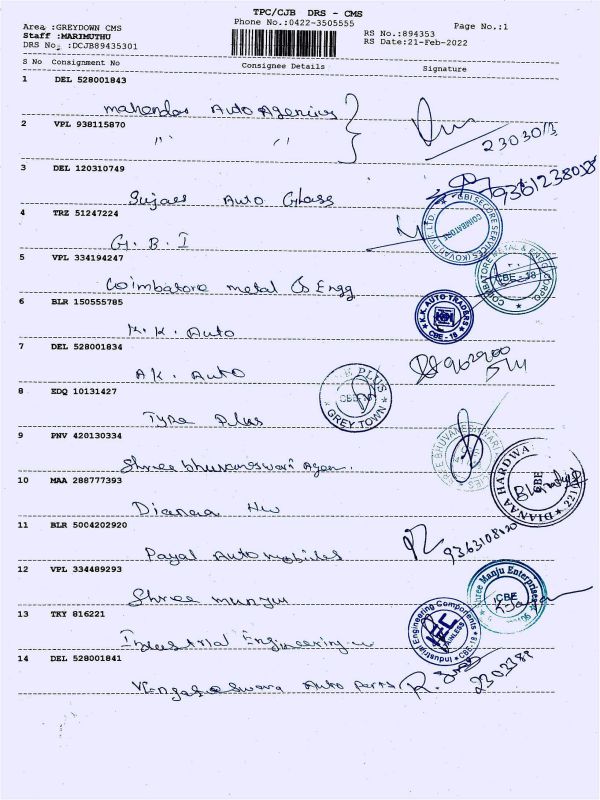 TPC/CJB DRS - CMS
Area :GREYDOWN CMS
Phone No.:0422-3505555
Page No.:1
Staff :MARIMUTHU
RS No.:894353
DRS No :DCJB89435301
RS Date:21-Feb-2022
S No Consignment No Consignee Details Signature
1 DEL 528001843
Mahendar Auto Agencies
2 VPL 938115870
" "
230301
3 DEL 120310749
Auto Glass
4 TRZ 51247224
G. B. I
GBI SECURE SERVICES (KOVAI) PVT. LTD.
COIMBATORE
5 VPL 334194247
Coimbatore metal & Engg
COIMBATORE METAL &
CBE - 18
6 BLR 150555785
K. K. Auto
K.K. AUTO TRADERS
CBE - 18
7 DEL 528001834
AK. Auto
8 EDQ 10131427
Tyre Plus
PLUS
GREY TOWN
9 PNV 420130334
Shree bhuvaneswari Agen.
BHUVANESHWARI
10 MAA 288777393
Dianaa Hw
DIANAA HARDWA
CBE
11 BLR 5004202920
Payal Automobiles
12 VPL 334489293
Shree manju
Shree Manju Enterprises
CBE
13 TKY 816221
Industrial Engineering
Industrial Engineering Components
IEC
CBE-18
14 DEL 528001841
Vengateswara Auto Parts